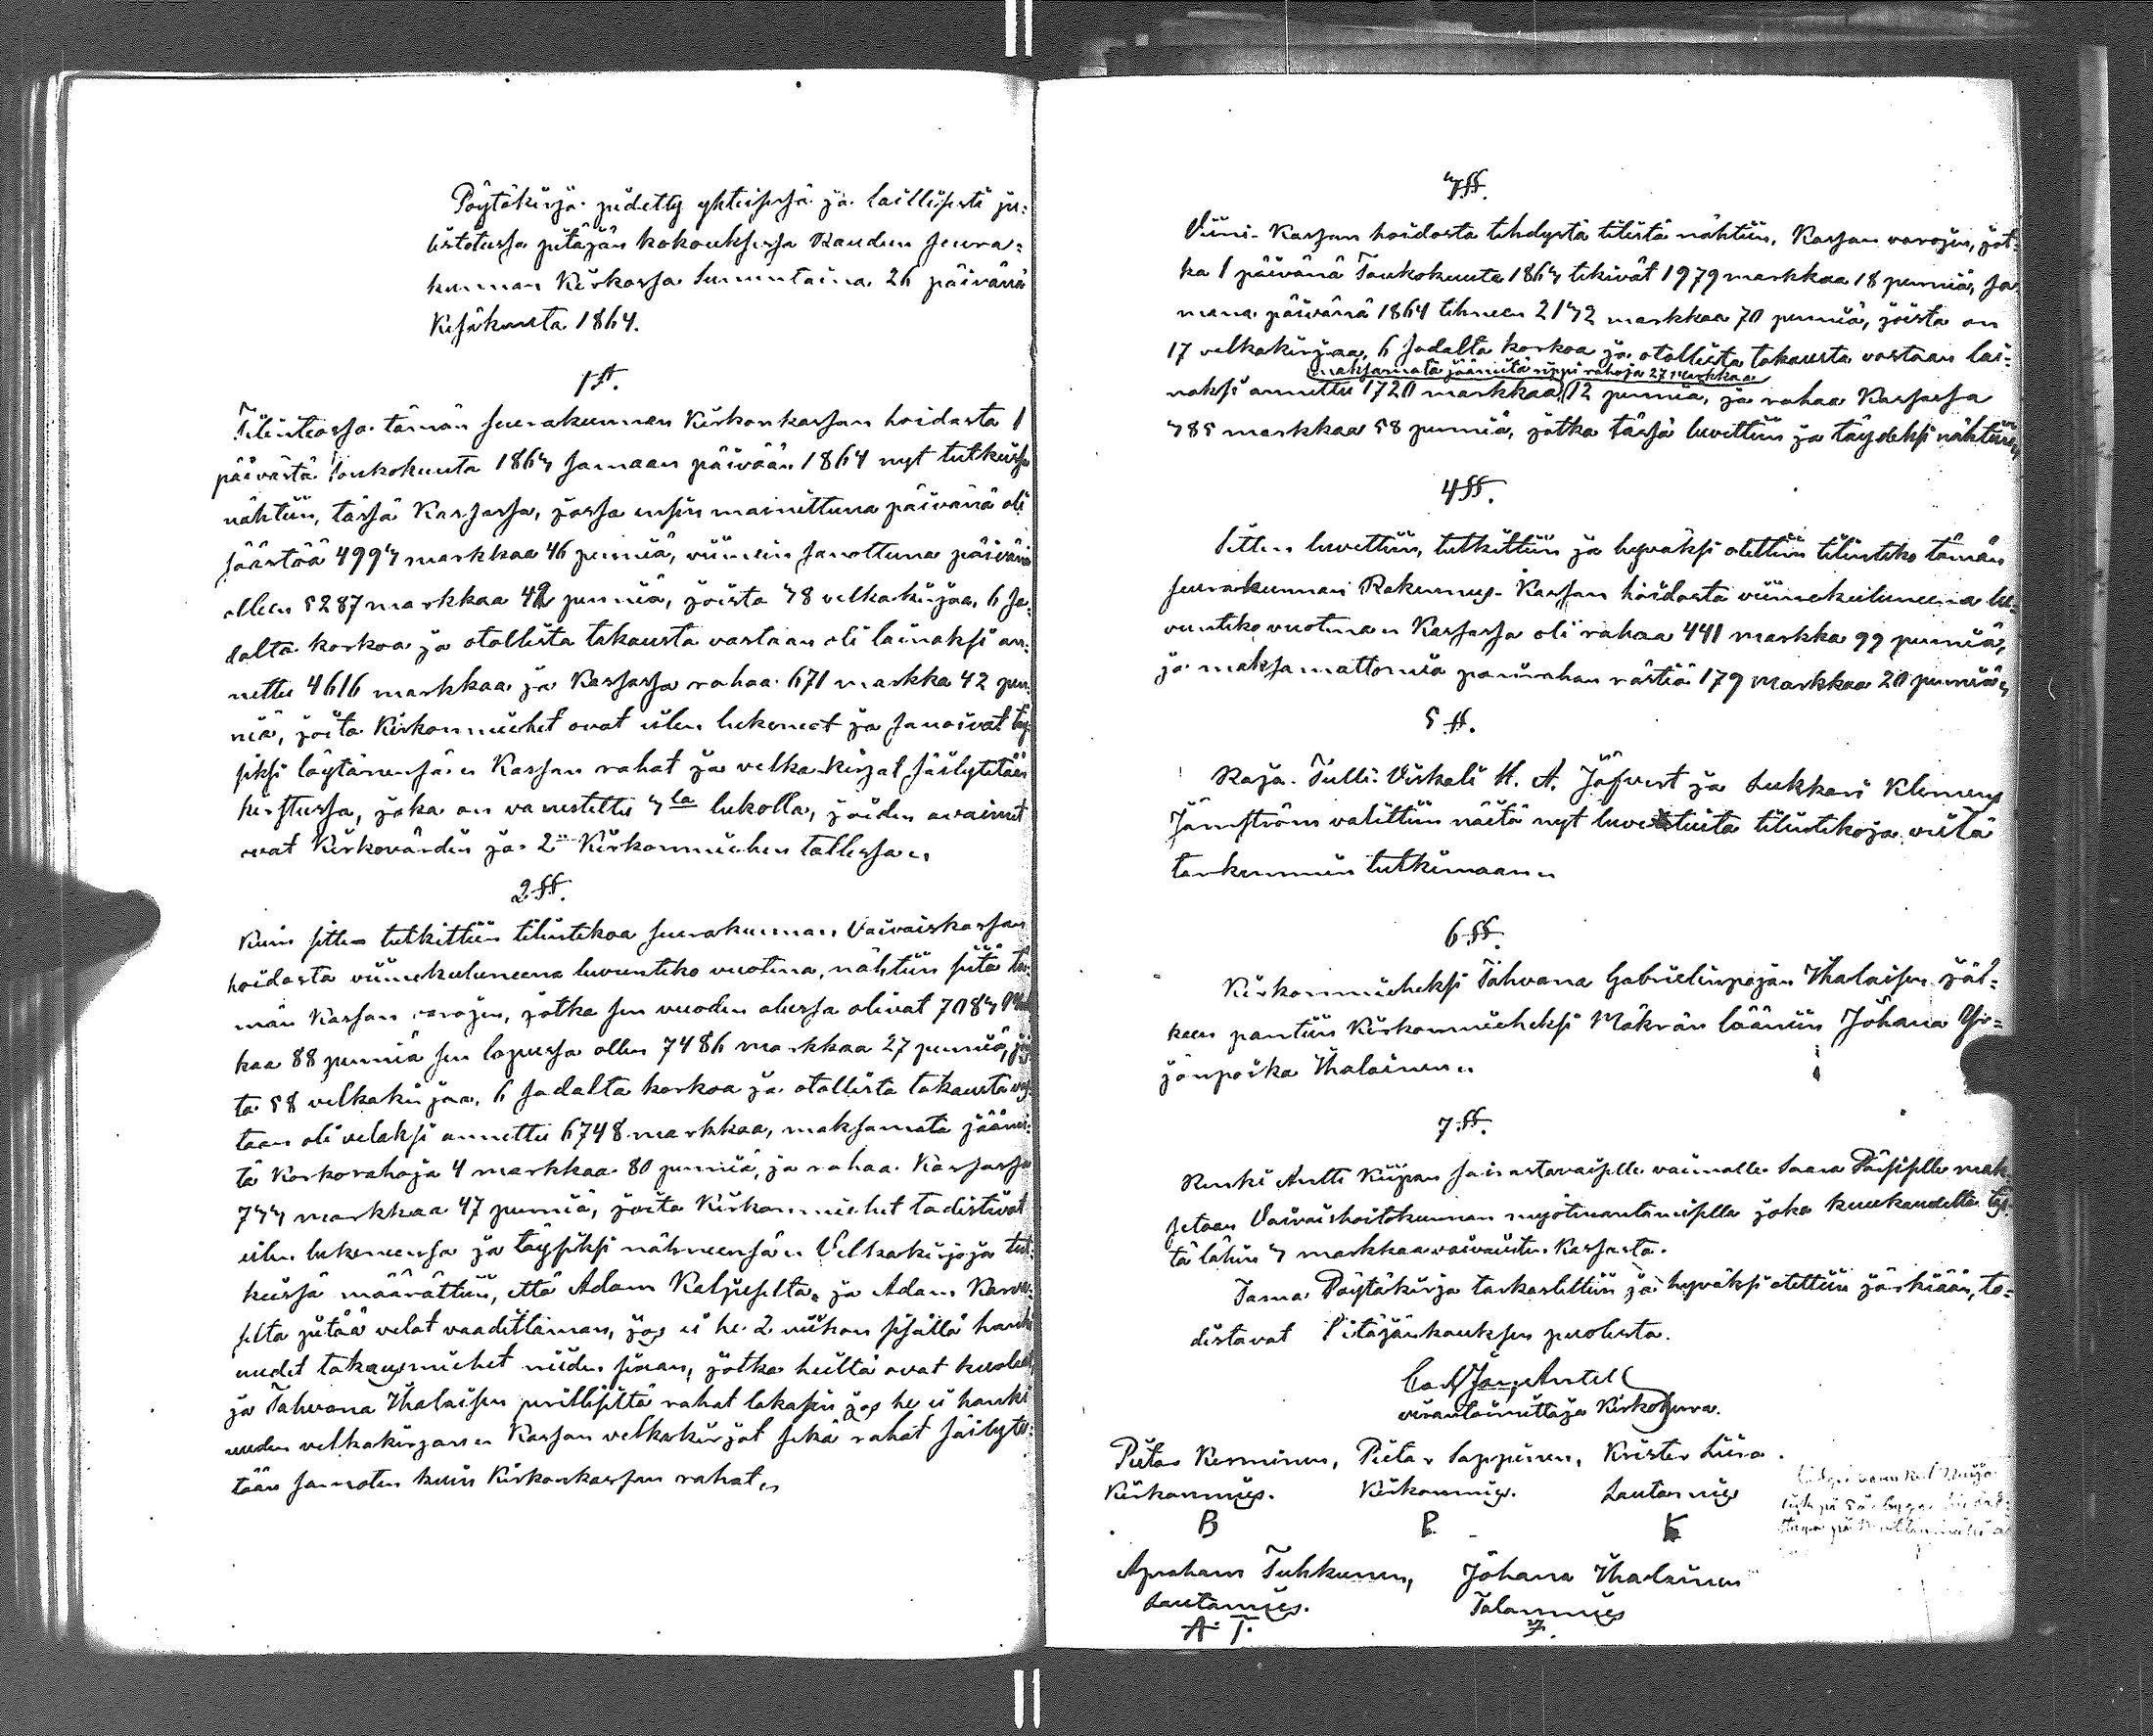 Pöytäkirja pidetty yhteisessä ja laillisesti ju-
listetussa pitäjän kokouksessa Raudun seura-
kunnan Kirkossa Sunnuntaina 26 päivänä
Kesäkuuta 1864.
1 §.
Tilinteossa tämän seurakunnan Kirkonkassan hoidosta 1
päivästä Toukokuuta 1863 samaan päivään 1864 nyt tutkeissa
nähtiin, tässä Kassassa, jossa ensin mainittuna päivänä oli
säästöä 4993 markkaa 46 penniä, viimein sanottuna päivänä
olleen 5287 markkaa 42 penniä, joista 38 velkakirjaa, 6 sa-
dalta korkoa ja otollista takausta vastaan oli lainaksi an-
nettu 4616 markkaa ja Kassassa rahaa 671 markka 42 pen-
niä, joita Kirkonmiehet ovat eilen lukeneet ja sanoivat täy-
siksi löytäneensä. Kassan rahat ja velka kirjat säilytetään
kirstussa, joka on varustettu 3la lukolla, joiden avaimet
ovat Kirkovärdin ja 2n Kirkonmiehen tallessa.
2 §.
Kuin sitten tutkittiin tilintekoa seurakunnan Vaivaiskassan
hoidosta viimekuluneena luvunteko vuotena, nähtiin siitä tä-
män Kassan varojen, jotka sen vuoden alussa olivat 7083 mark
kaa 88 penniä sen lopussa olleen 7486 markkaa 27 penniä, jois
ta 58 velkakirjaa, 6 sadalta korkoa ja otollista takausta vas
taan oli velaksi annettu 6748 markkaa, maksamata jäänei-
tä Korkorahoja 4 markkaa 80 penniä, ja rahaa Kassassa
733 markkaa 47 penniä, joita Kirkonmiehet todistivat
eilen lukeneensa ja täysiksi nähneensä. Velkakirjoja tut-
keissa määrättiin, että Adam Kaljuselta ja Adam
selta pitää velat vaadittaman, jos ei he 2 viikon sisällä hanki
uudet takausmiehet niiden sijaan, jotka heiltä ovat kuolleet
ja Tahvana Ihalaisen perillisiltä rahat takasin jos he ei hanki
uuden velkakirjan. Kassan velkakirjat sekä rahat säilyte-
tään samoten kuin Kirkonkassan rahat.
3 §.
Viini-Kassan hoidosta tehdystä tilistä nähtiin, Kassan varojen, jot-
ka 1 päivänä Toukokuuta 1863 tekivät 1979 markkaa 18 penniä, sa-
mana päivänä 1864 tehneen 2132 markkaa 70 penniä, joista on
17 velkakirjaa, 6 sadalta korkoa ja otollista takausta vastaan lai-
maksamata jääneitä rippi rahoja 27 markkaa
naksi annettu 1720 markkaa 12 penniä, ja rahaa Kassassa
385 markkaa 58 penniä, jotka tässä luvettiin ja täydeksi nähtiin.
4 §.
Sitten luvettiin, tutkittiin ja hyväksi otettiin tilinteko tämän
seurakunnan Rakennus-Kassan hoidosta viimekuluneena lu-
vunteko vuotena. Kassassa oli rahaa 441 markka 99 penniä,
ja maksamattomia rästiä 179 markkaa 20 penniä.
5 §.
Raja-Tulli-Viskali H. A. Jäfvert ja Lukkari Klemens
Jernström valittiin näitä nyt luvettuita tilintekoja vielä
tarkemmin tutkimaan.
6 §.
Kirkonmieheksi Tahvana Gabrielinpojan Ihalaisen jäl-
keen pantiin Kirkonmieheksi Mäkrän läänin Johana Yr-
jönpoika Ihalainen.
7 §.
Renki Antti Kiipan sairastavaiselle vaimolle Saara Päisiselle mak-
setaan Vaivaishoitokunnan myötenantamisella joka kuukaudelta täs-
tä lähin 3 markkaa vaivaisten Kassasta.
Tämä Pöytäkirja tarkastettiin ja hyväksi otettiin järkiään, to-
distavat Pitäjänkouksen puolesta.
Carl Joh: Antell
virantoimittaja Kirkoherra.
Pietar Kerminen, Pietar Lappinen, Krister Liira.
Kirkonmies. Kirkonmies. Lautamies
B P K
Apraham Tuhkunen, Johana Ihalainen
Lautamies. Talonmies
A. T. I.